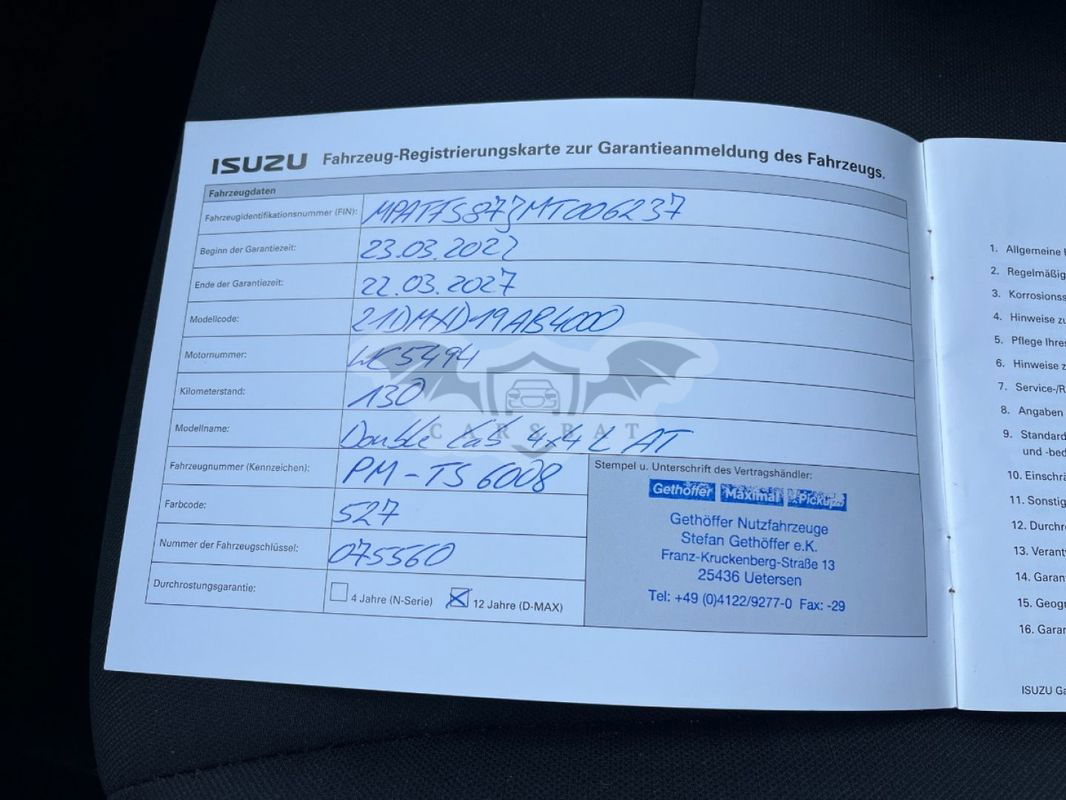 ISUZU Fahrzeug-Registrierungskarte zur Garantieanmeldung des Fahrzeugs.
Fahrzeugdaten
Fahrzeugidentifikationsnummer (FIN): MPATFS87JMT006237
Beginn der Garantiezeit: 23.03.2022
Ende der Garantiezeit: 22.03.2027
Modellcode: 21DMXD19AB4000
Motornummer: WC5494
Kilometerstand: 130
CARSBAT
Modellname: Double Cab 4x4 L AT
Fahrzeugnummer (Kennzeichen): PM-TS 6008
Farbcode: 527
Nummer der Fahrzeugschlüssel: 075560
Durchrostungsgarantie: 4 Jahre (N-Serie) 12 Jahre (D-MAX)
Stempel u. Unterschrift des Vertragshändler:
Gethöffer Maximal Pickup
Gethöffer Nutzfahrzeuge
Stefan Gethöffer e.K.
Franz-Kruckenberg-Straße 13
25436 Uetersen
Tel: +49 (0)4122/9277-0 Fax: -29
1. Allgemeine
2. Regelmäßig
3. Korrosionss
4. Hinweise zu
5. Pflege Ihres
6. Hinweise z
7. Service-/R
8. Angaben
9. Standard
und -bed
10. Einschrä
11. Sonstig
12. Durchr
13. Verant
14. Garan
15. Geogr
16. Garan
ISUZU Ga